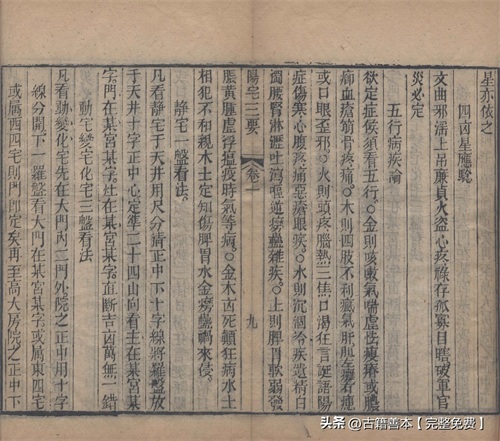 星亦依之
四凶星應驗
文曲邪淫上吊廉貞火盜心疼祿存孤寡目瞎破軍官
災必定
五行病疾論
欲定症侯須看五行。金則咳嗽氣喘虛怯瘦瘠或膿
血瘡筋骨疼痛。木則四肢不利
或口眼歪邪。火則頭疼腦熱三焦口渴狂言
症傷寒心腹疼痛惡瘡眼疾。水則沉涸冷疾遺精白
濁腰腎淋瀝吐瀉
脹黃腫虛浮瘟疫時氣等病。金木凶死顛狂病水土
相犯不和親木土定知傷脾胃水金
陽宅三要
卷一
九
靜宅一盤看法
凡看靜宅于天井用尺分清正中下十字線將羅盤放
于天井十字正中心定準二十四山向看主在某宮某
字門在某宮某字灶在某宮某字直斷吉凶萬無一錯
動宅變宅化宅三盤看法
凡看動變化宅先在大門內二門外院之正中用十字
線分開下一羅盤看大門在某宮某字或屬東四宅
或屬西四宅則門即定矣再至高大房院之正中下
头条@古籍善本【完整免费】